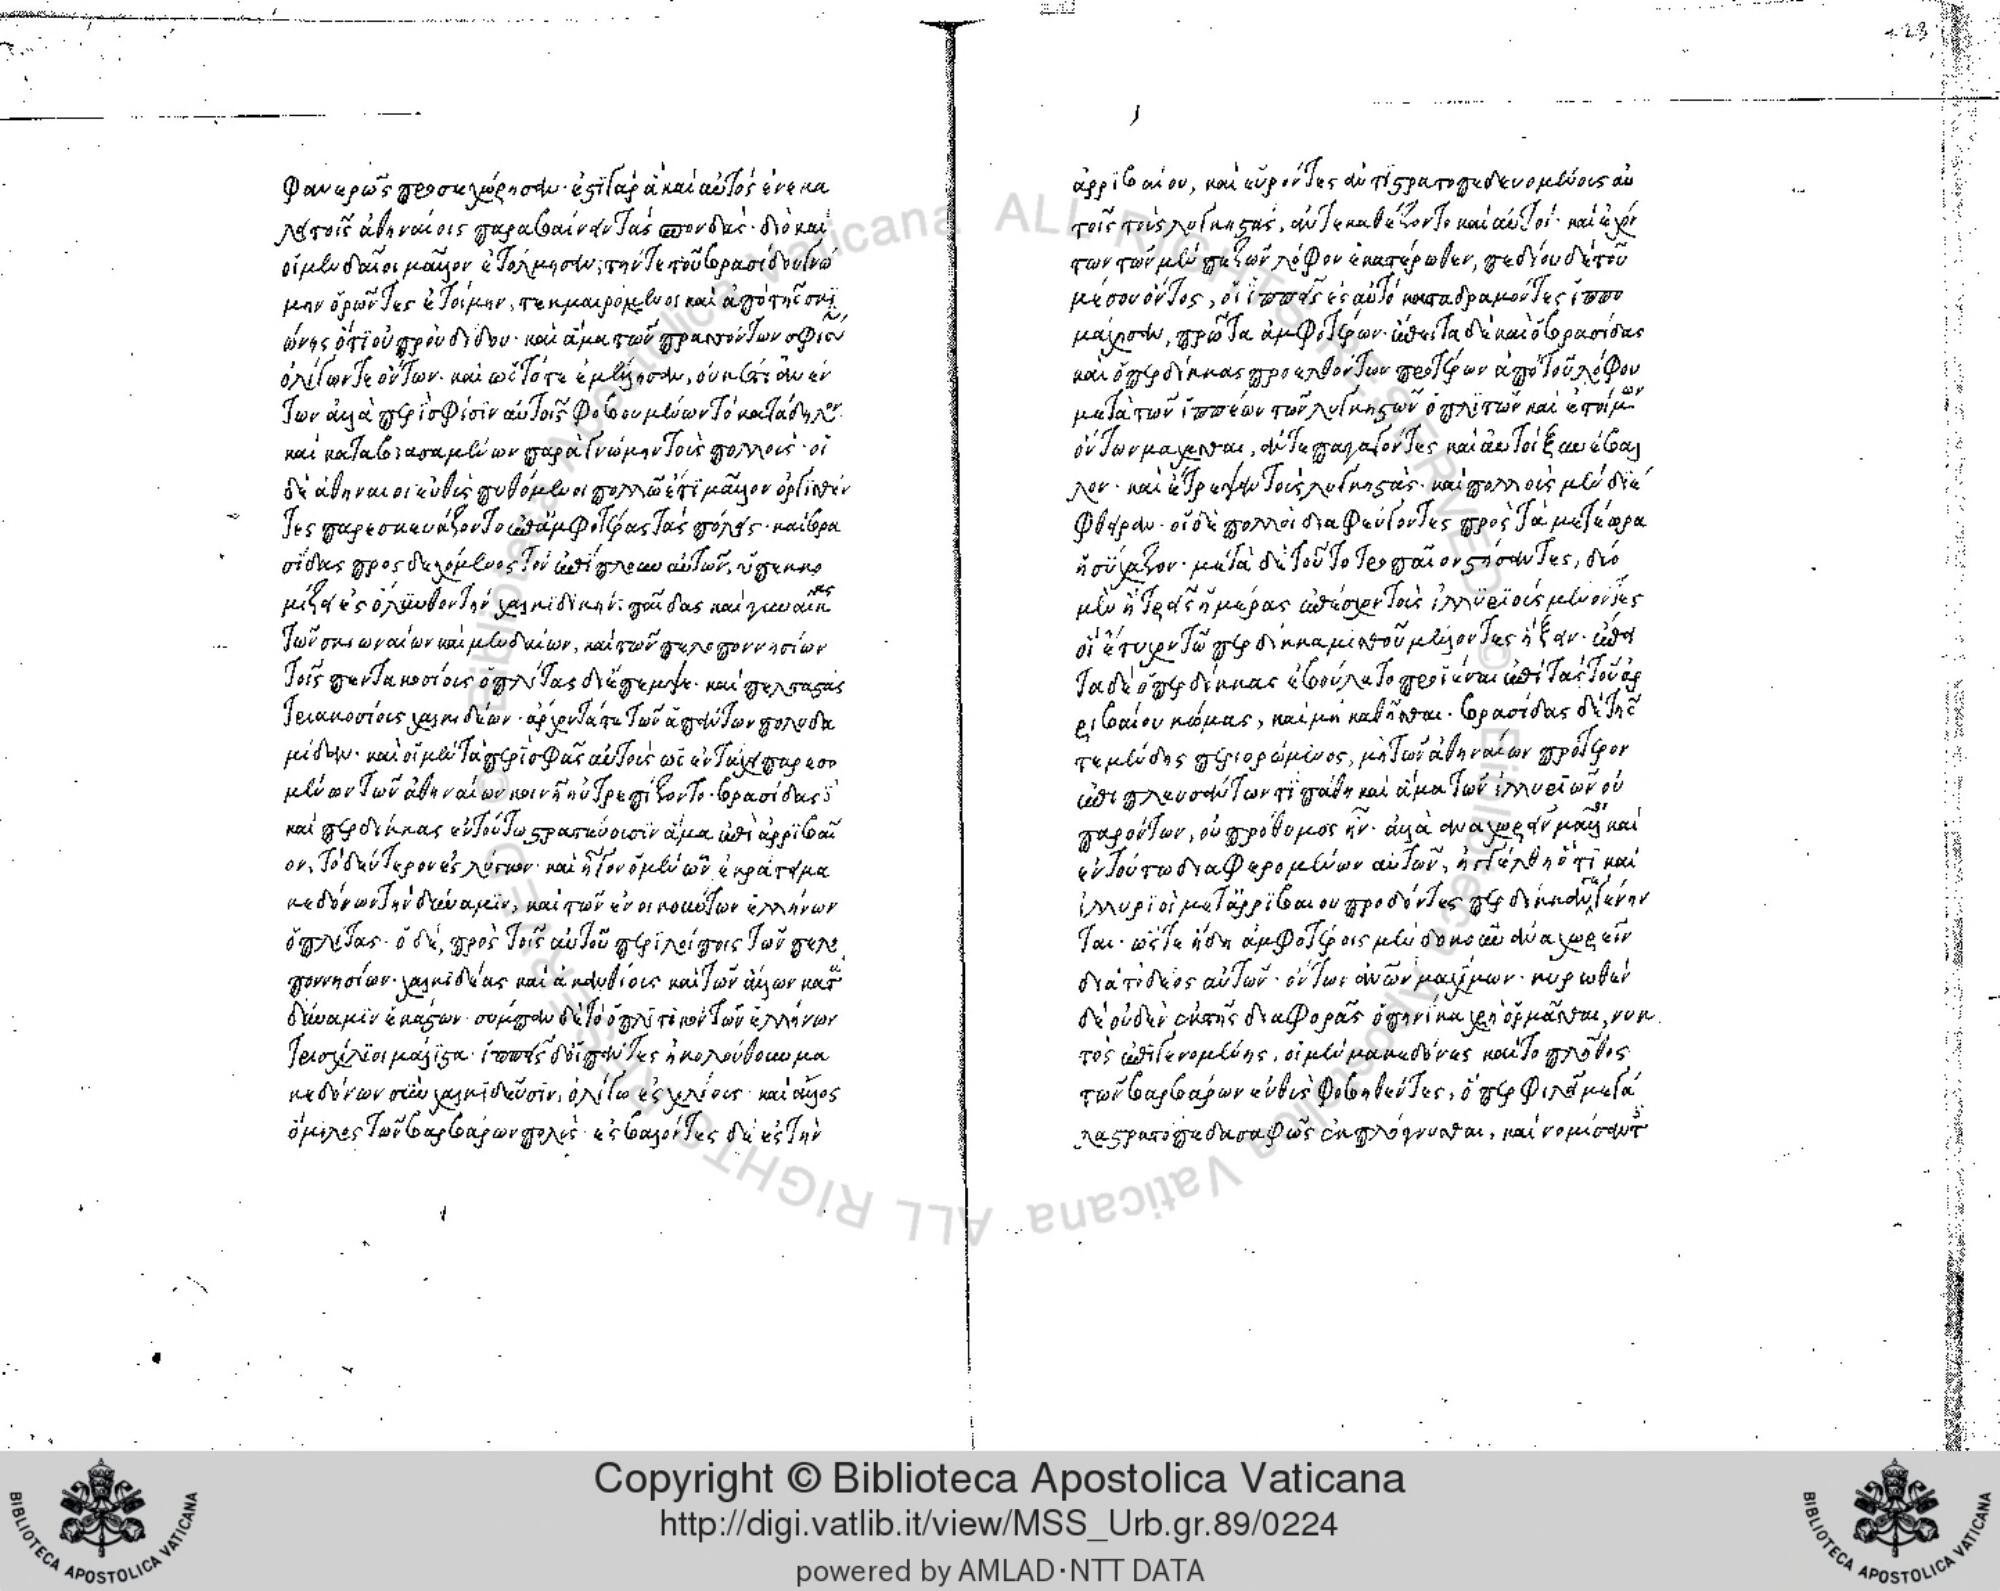 φανερῶς προσεχώρησαν· ἔστι γὰρ ἃ καὶ αὐτὸς ἐνεκά
λει τοῖς ἀθηναίοις παραβαίνειν τὰς σπονδάς· διὸ καὶ
οἱ μενδαῖοι μᾶλλον ἐτόλμησαν, τήν τε τοῦ βρασίδου γνώ
μην ὁρῶντες ἑτοίμην, τεκμαιρόμενοι καὶ ἀπὸ τῆς σκι
ώνης ὅτι οὐ προὐδίδου· καὶ ἅμα τῶν πρασσόντων σφίσιν
ὀλίγων τε ὄντων· καὶ ὡς τότε ἐμέλλησαν, οὐκέτι ἀνέν
των ἀλλὰ περὶ σφίσιν αὐτοῖς φοβουμένων τὸ κατάδηλον·
καὶ καταβιασαμένων παρὰ γνώμην τοὺς πολλούς· οἱ
δὲ ἀθηναῖοι εὐθὺς πυθόμενοι πολλῶ ἔτι μᾶλλον ὀργισθέν
τες παρεσκευάζοντο ἐπ' ἀμφοτέρας τὰς πόλεις· καὶ βρα
σίδας προσδεχόμενος τὸν ἐπίπλουν αὐτῶν, ὑπεκκο
μίζει ἐς ὄλυνθον τὴν χαλκιδικὴν παῖδας καὶ γυναῖκας
τῶν σκιωναίων καὶ μενδαίων, καὶ τῶν πελοποννησίων
τοῖς πεντακοσίοις ὁπλίτας διέπεμψε· καὶ πελταστὰς
τριακοσίοις χαλκιδέων· ἄρχοντά τε τῶν ἁπάντων πολυδα
μίδαν· καὶ οἱ μὲν τὰ περὶ σφᾶς αὐτοὺς ὡς ἐν τάχει παρεσο
μένων τῶν ἀθηναίων κοινῆ ηὐτρεπίζοντο· βρασίδας δὲ
καὶ περδίκκας ἐν τούτω στρατεύουσιν ἅμα ἐπὶ ἀρριβαῖ
ον, τὸ δεύτερον ἐς λύγκον· καὶ ἦγον ὁ μὲν ὧν ἐκράτει μα
κεδόνων τὴν δύναμιν, καὶ τῶν ἐνοικούντων ἑλλήνων
ὁπλίτας· ὁ δὲ, πρὸς τοῖς αὐτοῦ περιλοίποις τῶν πελο
ποννησίων· χαλκιδέας καὶ ἀκανθίους καὶ τῶν ἄλλων κατὰ
δύναμιν ἑκάστων· σύμπαν δὲ τὸ ὁπλιτικὸν τῶν ἑλλήνων
τρισχίλιοι μάλιστα· ἱππεῖς δ' οἱ πάντες ἠκολούθουν μα
κεδόνων σὺν χαλκιδεῦσιν, ὀλίγω ἐς χιλίους· καὶ ἄλλος
ὅμιλος τῶν βαρβάρων πολύς· ἐσβαλόντες δὲ ἐς τὴν
ἀρριβαίου, καὶ εὑρόντες ἀντιστρατοπεδευομένους αὐ
τοῖς τοὺς λυγκηστάς, ἀντεκαθέζοντο καὶ αὐτοί· καὶ ἐχόν
των τῶν μὲν πεζῶν λόφον ἑκατέρωθεν, πεδίου δὲ τοῦ
μέσου ὄντος, οἱ ἱππεῖς ἐς αὐτὸ καταδραμόντες ἱππο
μάχησαν, πρῶτα ἀμφοτέρων· ἔπειτα δὲ καὶ ὁ βρασίδας
καὶ ὁ περδίκκας προελθόντων προτέρων ἀπὸ τοῦ λόφου
μετὰ τῶν ἱππέων τῶν λυγκηστῶν ὁπλιτῶν καὶ ἑτοίμων
ὄντων μάχεσθαι, ἀντεπαγαγόντες καὶ αὐτοὶ ξυνέβαλ
λον· καὶ ἔτρεψαν τοὺς λυγκηστάς· καὶ πολλοὺς μὲν διέ
φθειραν· οἱ δὲ πολλοὶ διαφεύγοντες πρὸς τὰ μετέωρα
ἡσύχαζον· μετὰ δὲ τοῦτο τροπαῖον στήσαντες, δύο
μὲν ἢ τρεῖς ἡμέρας ἐπέσχον τοὺς ἰλλυριοὺς μένοντες
οἳ ἔτυχον τῶ περδίκκα μισθοῦ μέλλοντες ἥξειν· ἔπει
τα δὲ ὁ περδίκκας ἐβούλετο προϊέναι ἐπὶ τὰς τοῦ ἀρ
ριβαίου κώμας, καὶ μὴ καθῆσθαι· βρασίδας δὲ τῆς
τε μένδης περιορώμενος, μὴ τῶν ἀθηναίων πρότερον
ἐπιπλευσάντων τι πάθη καὶ ἅμα τῶν ἰλλυριῶν οὐ
παρόντων, οὐ πρόθυμος ἦν· ἀλλὰ ἀναχωρεῖν μᾶλλον καὶ
ἐν τούτω διαφερομένων αὐτῶν, ἠγγέλθη ὅτι καὶ
ἰλλυριοὶ μετ' ἀρριβαίου προδόντες περδίκκαν γεγένην
ται· ὥστε ἤδη ἀμφοτέροις μὲν δοκοῦν ἀναχωρεῖν
διὰ τὸ δέος αὐτῶν· ὄντων ἀνῶν μαχίμων· κυρωθὲν
δὲ οὐδὲν ἐκ τῆς διαφορᾶς ὁπηνίκα χρὴ ὁρμᾶσθαι, νυκ
τὸς ἐπιγενομένης, οἱ μὲν μακεδόνες καὶ τὸ πλῆθος
τῶν βαρβάρων εὐθὺς φοβηθέντες, ὅπερ φιλεῖ μεγά
λα στρατόπεδα σαφῶς ἐκπλήγνυσθαι, καὶ νομίσαντες
Copyright © Biblioteca Apostolica Vaticana
http://digi.vatlib.it/view/MSS_Urb.gr.89/0224
powered by AMLAD·NTT DATA
BIBLIOTECA APOSTOLICA VATICANA
BIBLIOTECA APOSTOLICA VATICANA